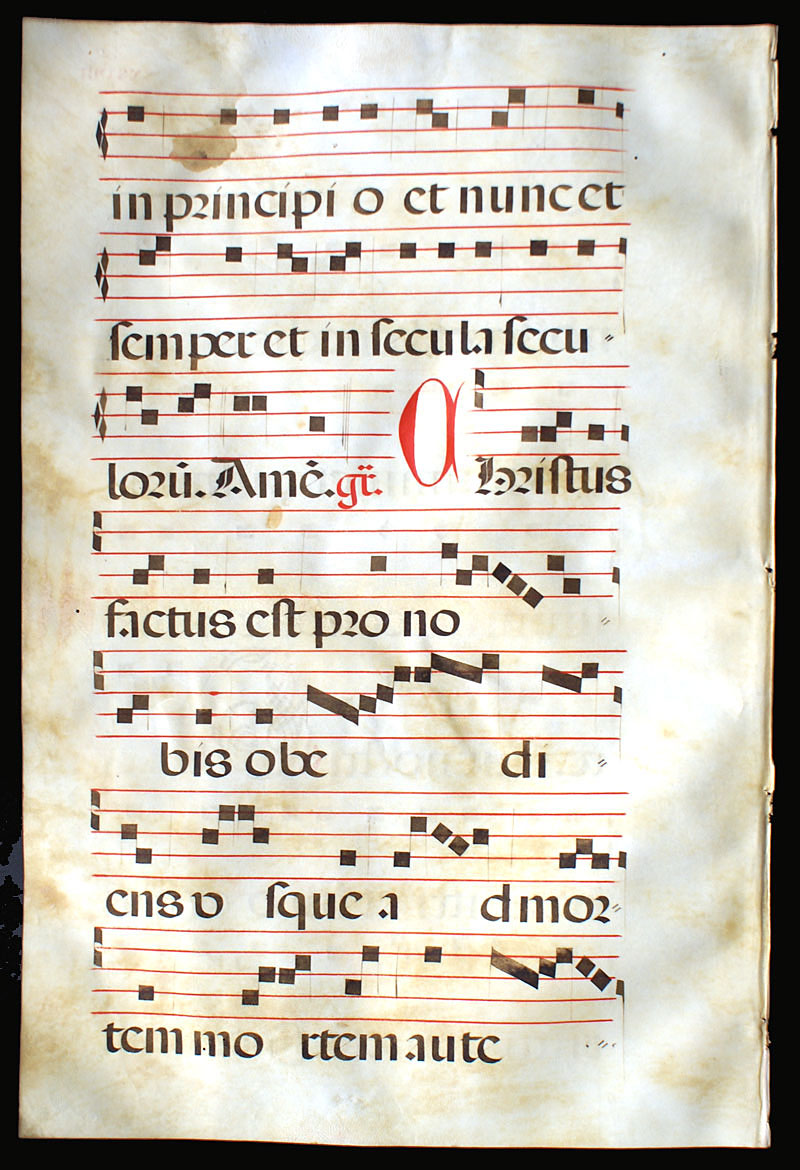 in principi o et nunc et
semper et in secula secu
lorū. Amē. gr̄. Christus
factus est pro no
bis obe di
ens v sque a d mor
tem mo rtem aute